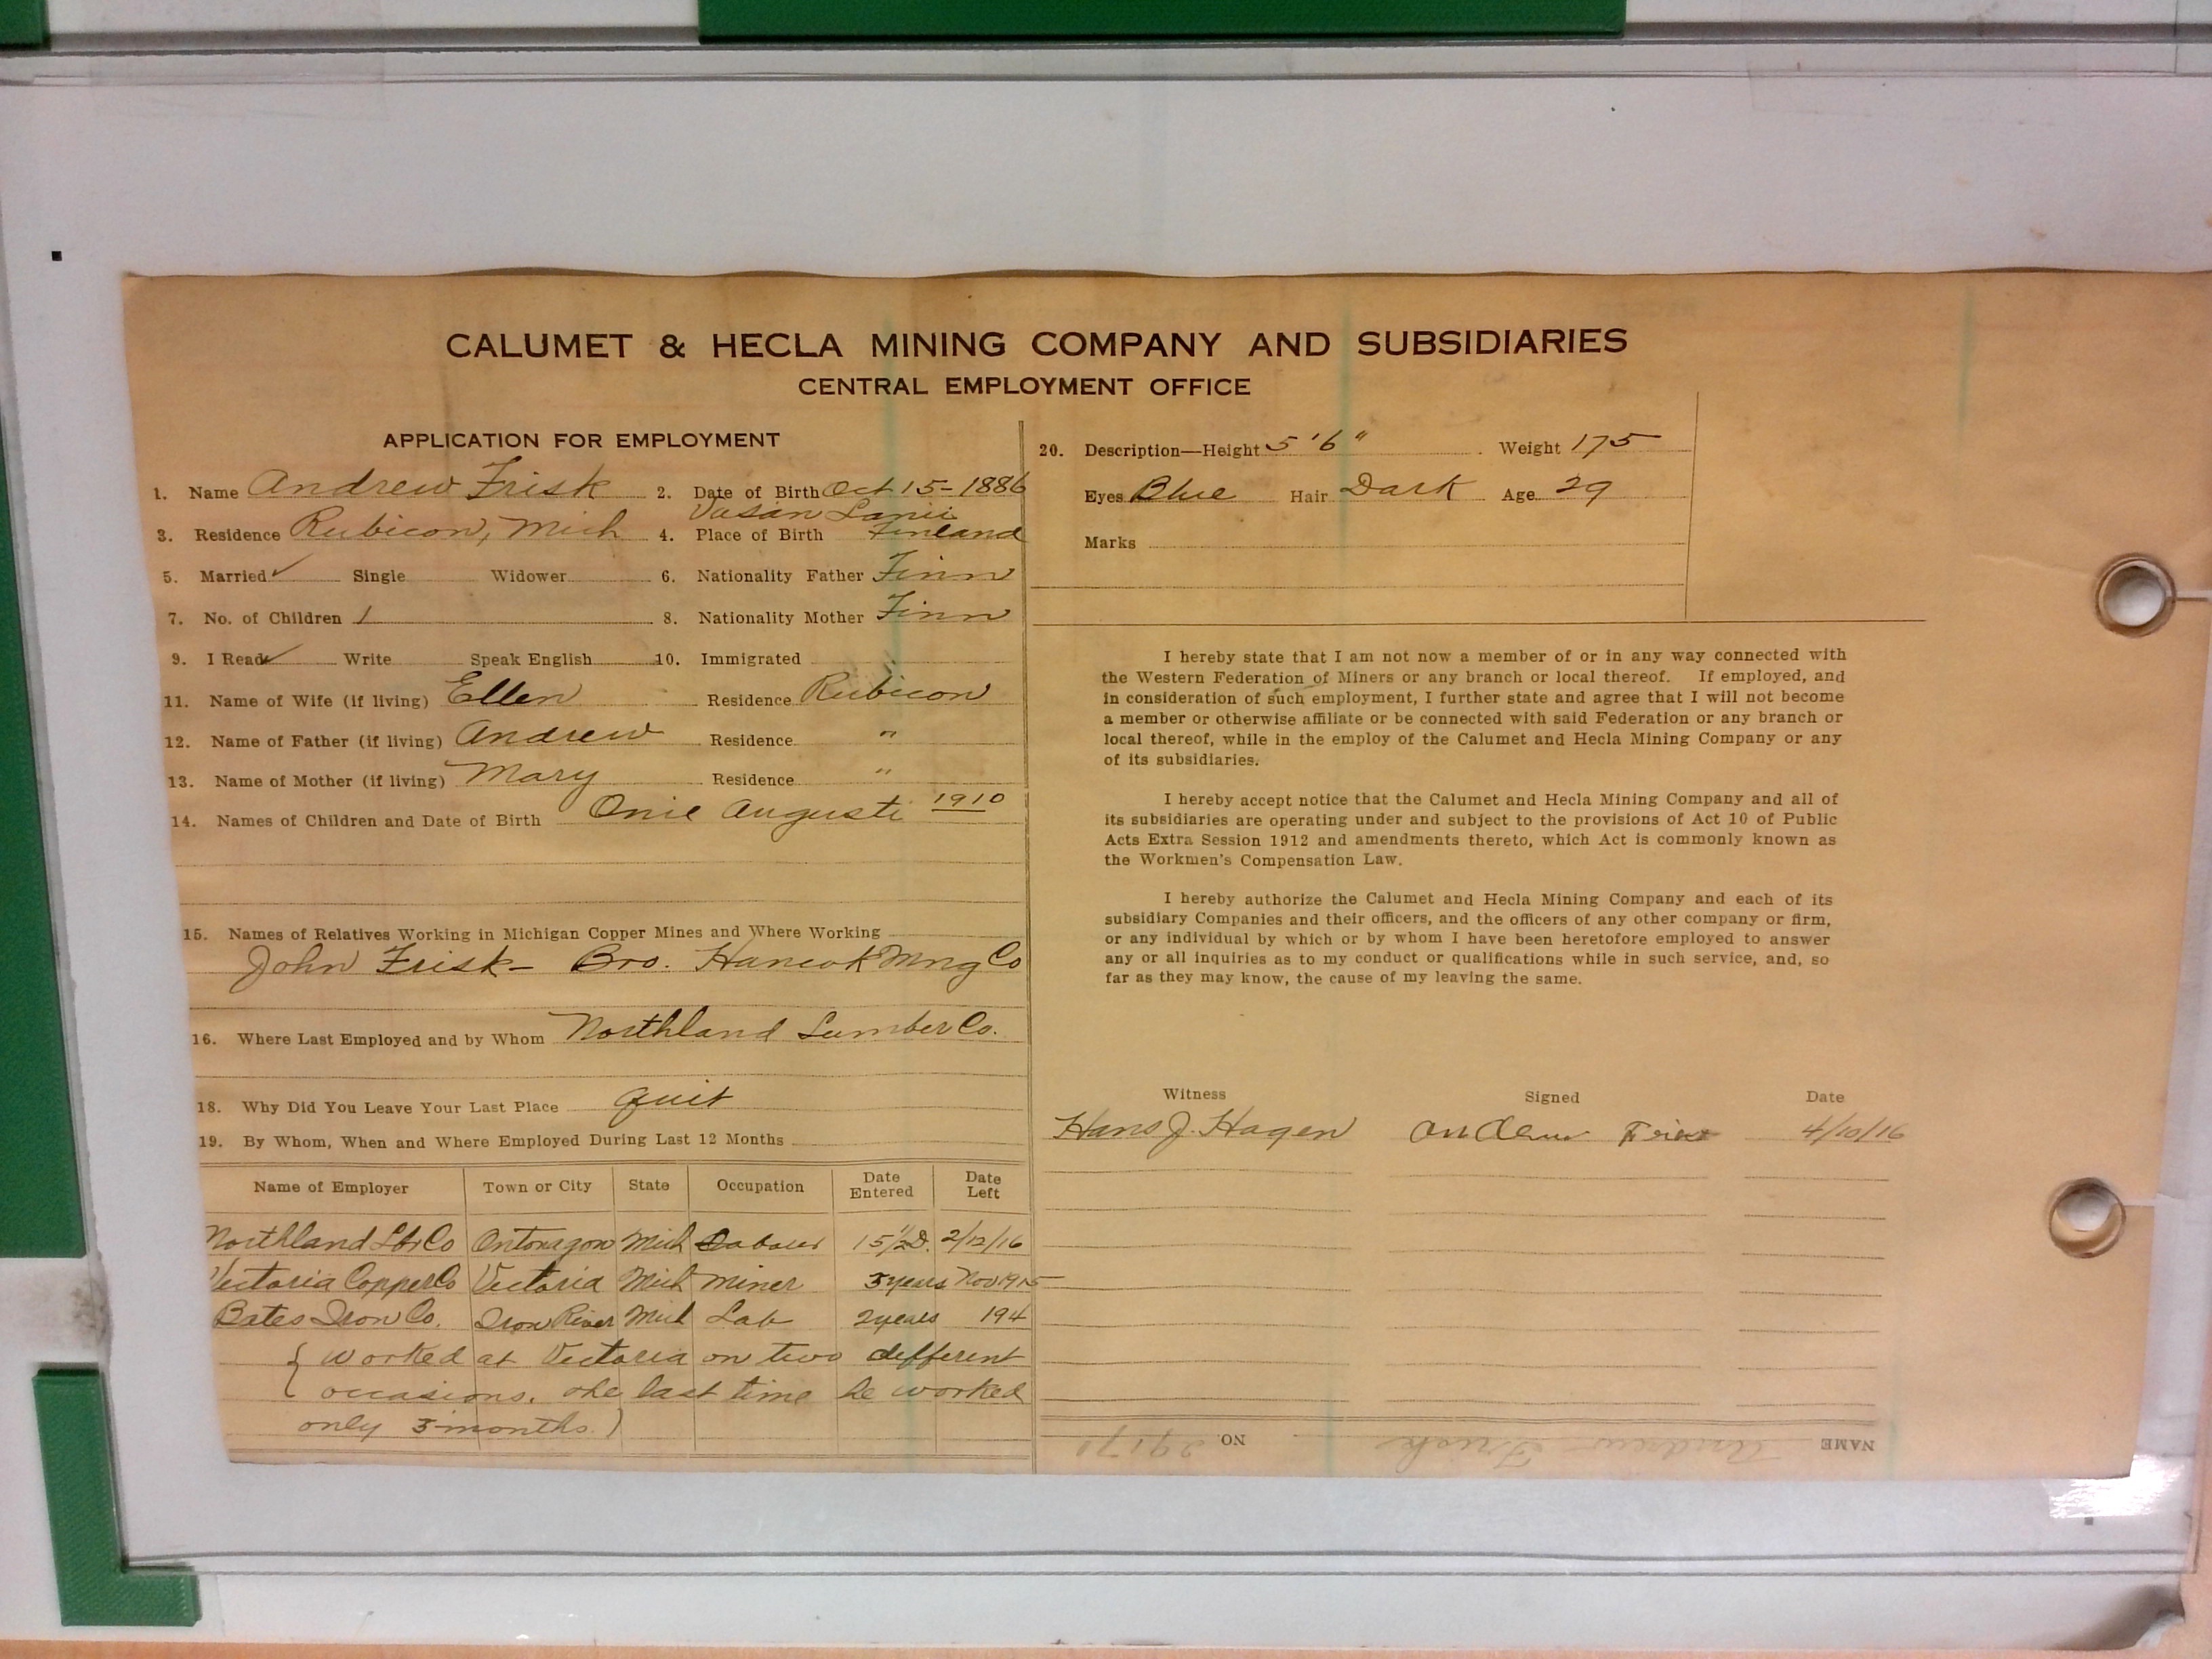 CALUMET & HECLA MINING COMPANY AND SUBSIDIARIES
CENTRAL EMPLOYMENT OFFICE
APPLICATION FOR EMPLOYMENT
1. Name Andrew Frisk 2. Date of Birth Oct 15-1886
Vasan Lanii
3. Residence Rubicon, Mich 4. Place of Birth Finland
5. Married ✓ Single Widower 6. Nationality Father Finn
7. No. of Children 1 8. Nationality Mother Finn
9. I Read ✓ Write Speak English 10. Immigrated
11. Name of Wife (if living) Ellen Residence Rubicon
12. Name of Father (if living) Andrew Residence "
13. Name of Mother (if living) Mary Residence "
14. Names of Children and Date of Birth Onie Augusti 1910
15. Names of Relatives Working in Michigan Copper Mines and Where Working
John Frisk - Bro. Hancok Mng Co
16. Where Last Employed and by Whom Northland Lumber Co.
18. Why Did You Leave Your Last Place quit
19. By Whom, When and Where Employed During Last 12 Months
Name of Employer Town or City State Occupation Date Entered Date Left
Northland Lbr Co Ontonagon Mich Labour 15 1/2 D. 2/12/16
Victoria Copper Co Victoria Mich Miner 3 years Nov 1915
Bates Iron Co. Iron River Mich Lab 2 years 194
{ worked at Victoria on two different
occasions. the last time he worked
only 3 months. )
20. Description—Height 5'6" Weight 175
Eyes Blue Hair Dark Age 29
Marks
I hereby state that I am not now a member of or in any way connected with
the Western Federation of Miners or any branch or local thereof. If employed, and
in consideration of such employment, I further state and agree that I will not become
a member or otherwise affiliate or be connected with said Federation or any branch or
local thereof, while in the employ of the Calumet and Hecla Mining Company or any
of its subsidiaries.
I hereby accept notice that the Calumet and Hecla Mining Company and all of
its subsidiaries are operating under and subject to the provisions of Act 10 of Public
Acts Extra Session 1912 and amendments thereto, which Act is commonly known as
the Workmen's Compensation Law.
I hereby authorize the Calumet and Hecla Mining Company and each of its
subsidiary Companies and their officers, and the officers of any other company or firm,
or any individual by which or by whom I have been heretofore employed to answer
any or all inquiries as to my conduct or qualifications while in such service, and, so
far as they may know, the cause of my leaving the same.
Witness Signed Date
Hans J. Hagen Andrew Frisk 4/10/16
NAME Andrew Frisk NO. 29170